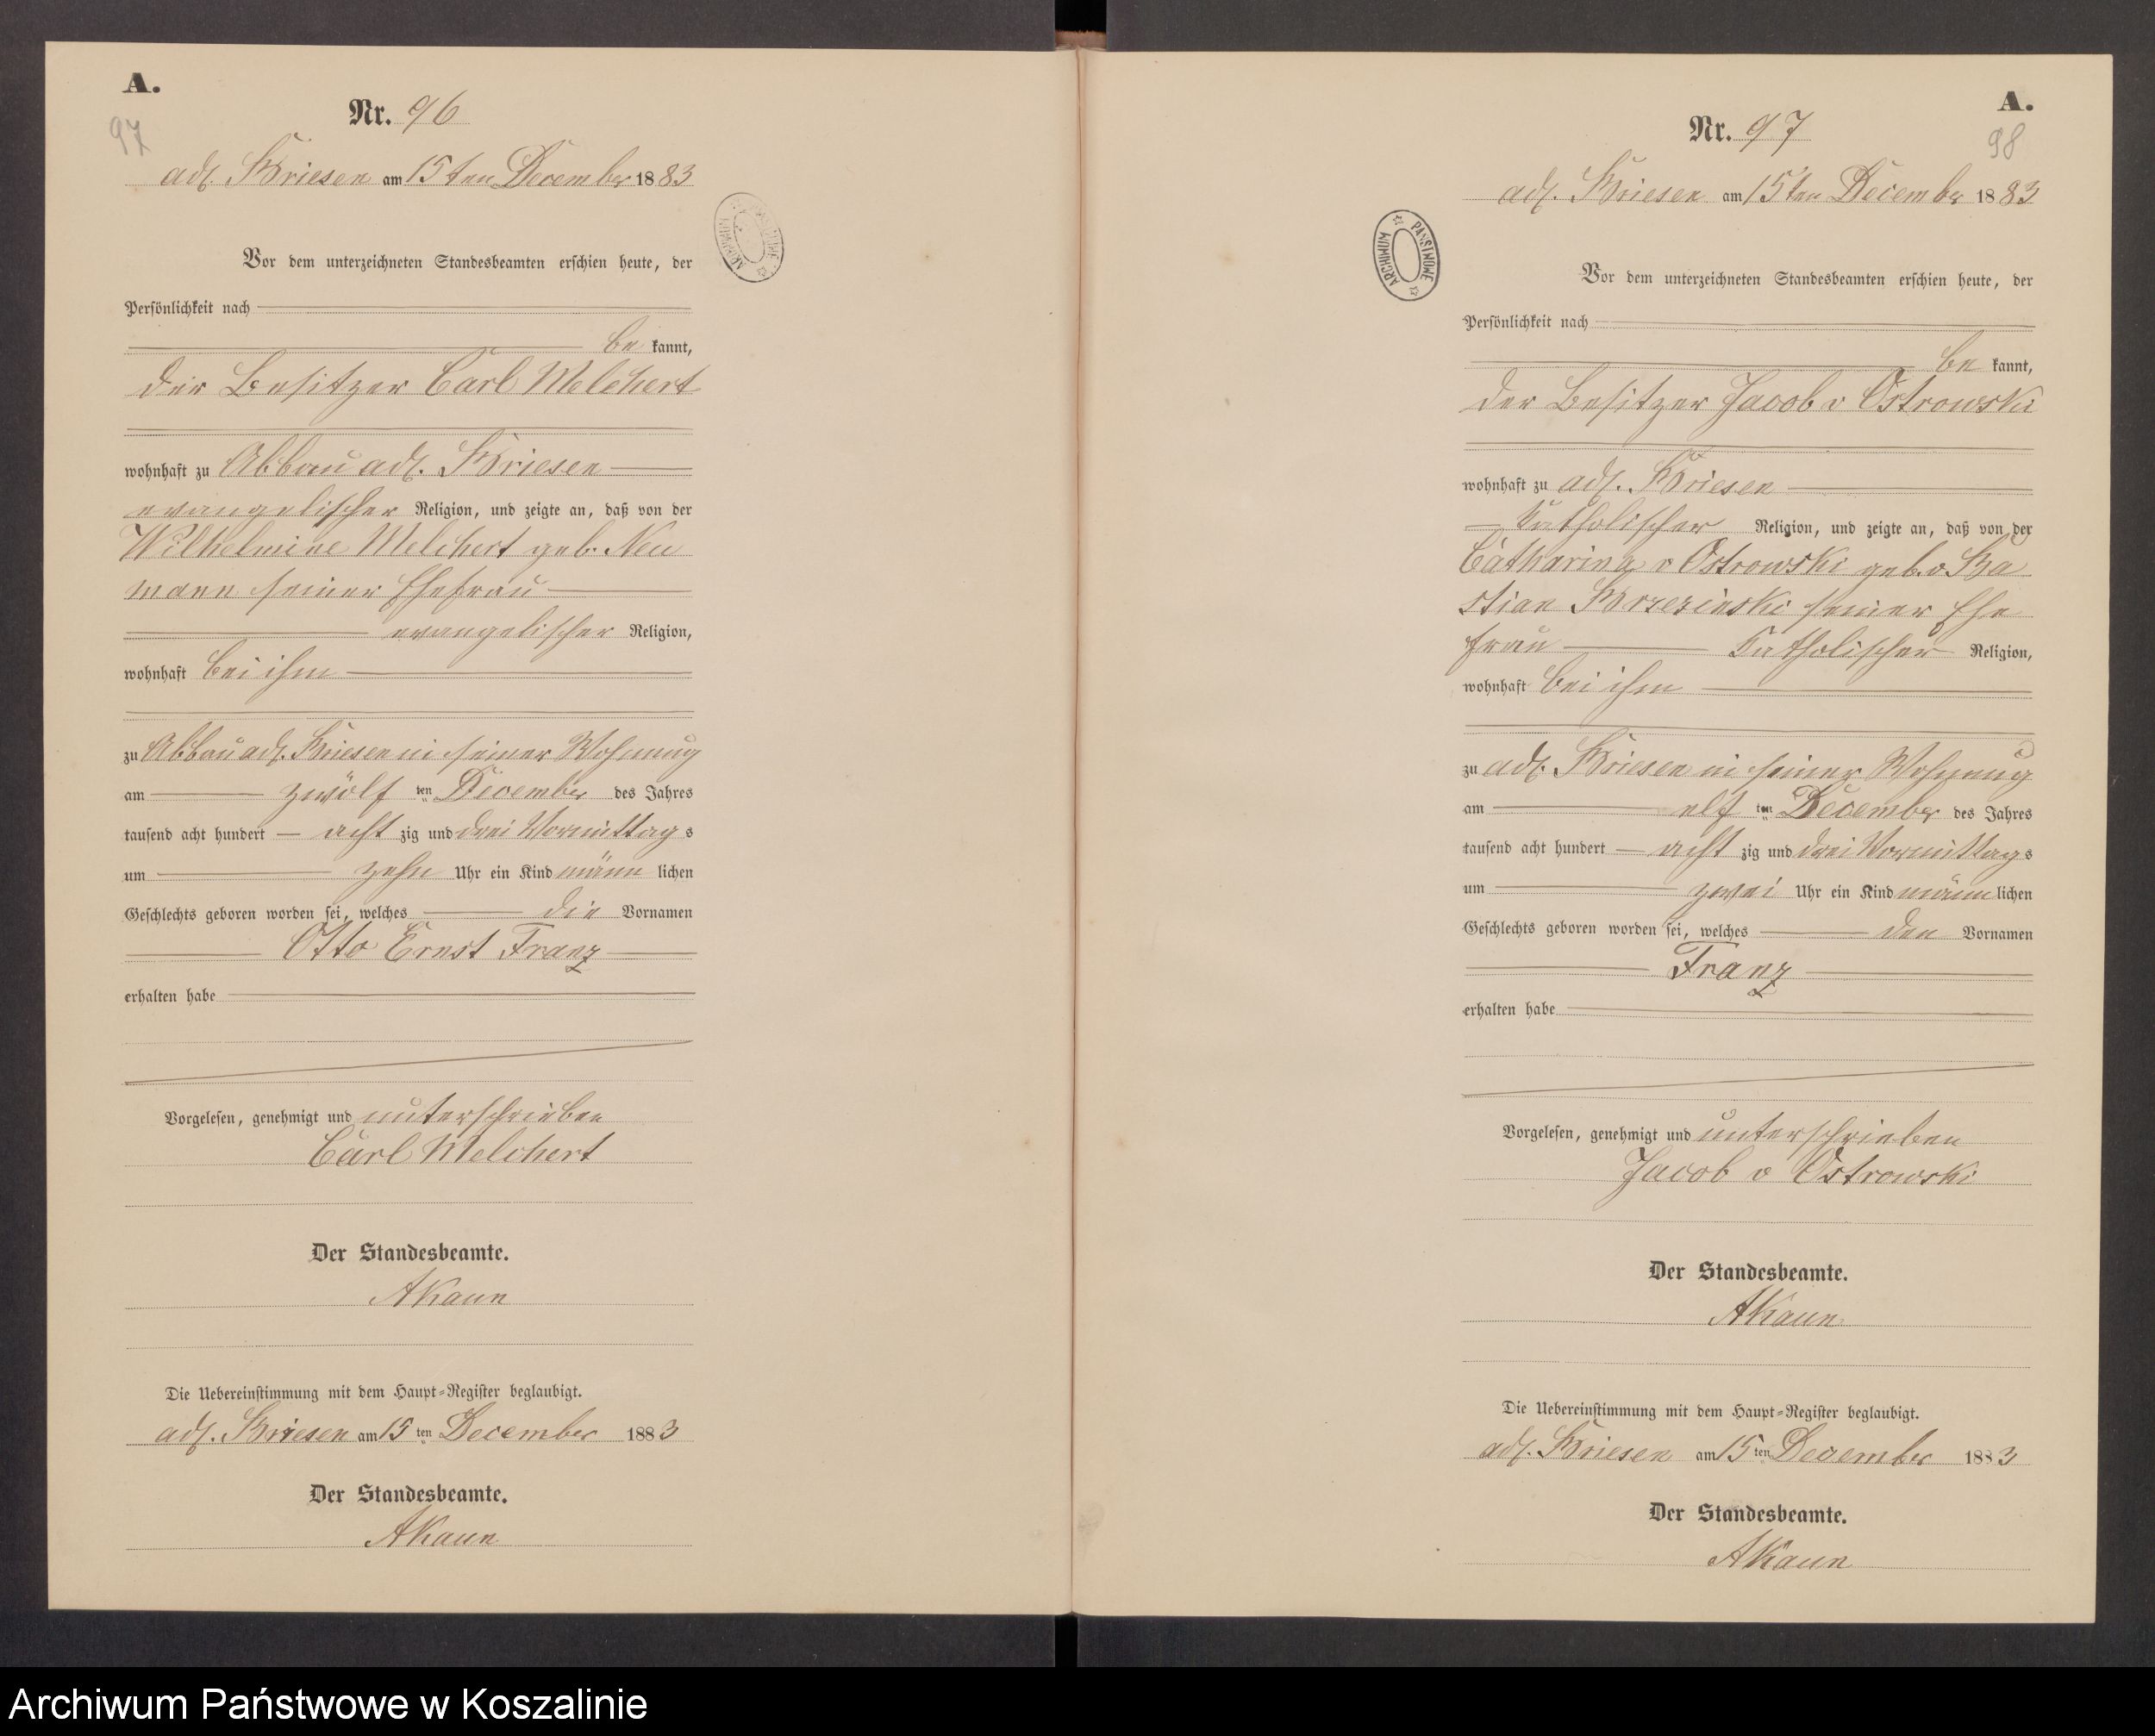 A.
97
Nr. 96
adl. Briesen am 15ten December 1883
Vor dem unterzeichneten Standesbeamten erschien heute, der
Persönlichkeit nach
be kannt,
der Besitzer Carl Melchert
wohnhaft zu Abbau adl. Briesen
evangelischer Religion, und zeigte an, daß von der
Wilhelmine Melchert geb. Neu
mann seiner Ehefrau
evangelischer Religion,
wohnhaft bei ihm
zu Abbau adl. Briesen in seiner Wohnung
am zwölf ten December des Jahres
tausend acht hundert acht zig und drei Vormittag s
um zehn Uhr ein Kind männ lichen
Geschlechts geboren worden sei, welches die Vornamen
Otto Ernst Franz
erhalten habe
Vorgelesen, genehmigt und unterschrieben
Carl Melchert
Der Standesbeamte.
AKaun
Die Uebereinstimmung mit dem Haupt-Register beglaubigt.
adl. Briesen am 15 ten December 1883
Der Standesbeamte.
AKaun
ARCHIWUM PAŃSTWOWE
A.
98
Nr. 97
adl. Briesen am 15ten December 1883
ARCHIWUM PAŃSTWOWE
Vor dem unterzeichneten Standesbeamten erschien heute, der
Persönlichkeit nach
be kannt,
der Besitzer Jacob v Ostrowski
wohnhaft zu adl. Briesen
katholischer Religion, und zeigte an, daß von der
Catharina v Ostrowski geb. v Ba
stian Brzezinski seiner Ehe
frau katholischer Religion,
wohnhaft bei ihm
zu adl. Briesen in seiner Wohnung
am elf ten December des Jahres
tausend acht hundert acht zig und drei Vormittag s
um zwei Uhr ein Kind männ lichen
Geschlechts geboren worden sei, welches den Vornamen
Franz
erhalten habe
Vorgelesen, genehmigt und unterschrieben
Jacob v Ostrowski
Der Standesbeamte.
AKaun
Die Uebereinstimmung mit dem Haupt-Register beglaubigt.
adl. Briesen am 15 ten December 1883
Der Standesbeamte.
AKaun
Archiwum Państwowe w Koszalinie